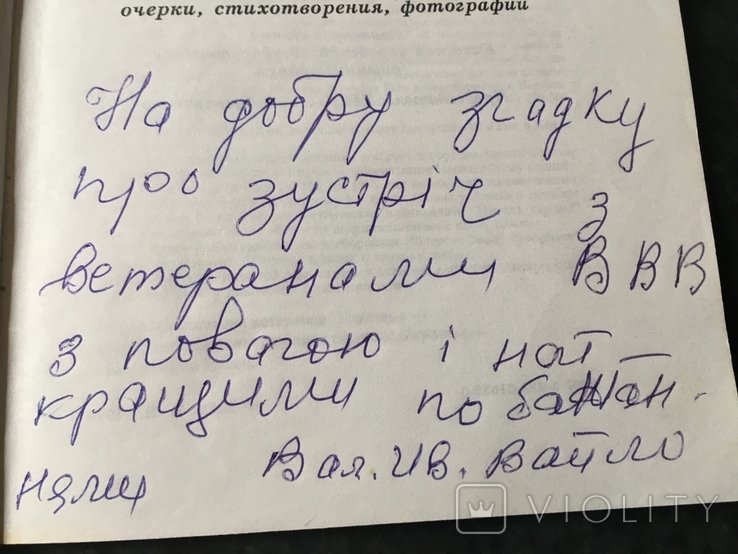 очерки, стихотворения, фотографии
На добру згадку
про зустріч з
ветеранами ВВВ
з повагою і най
кращими побажан-
нями Вал. Ив. Вайло
VIOLITY